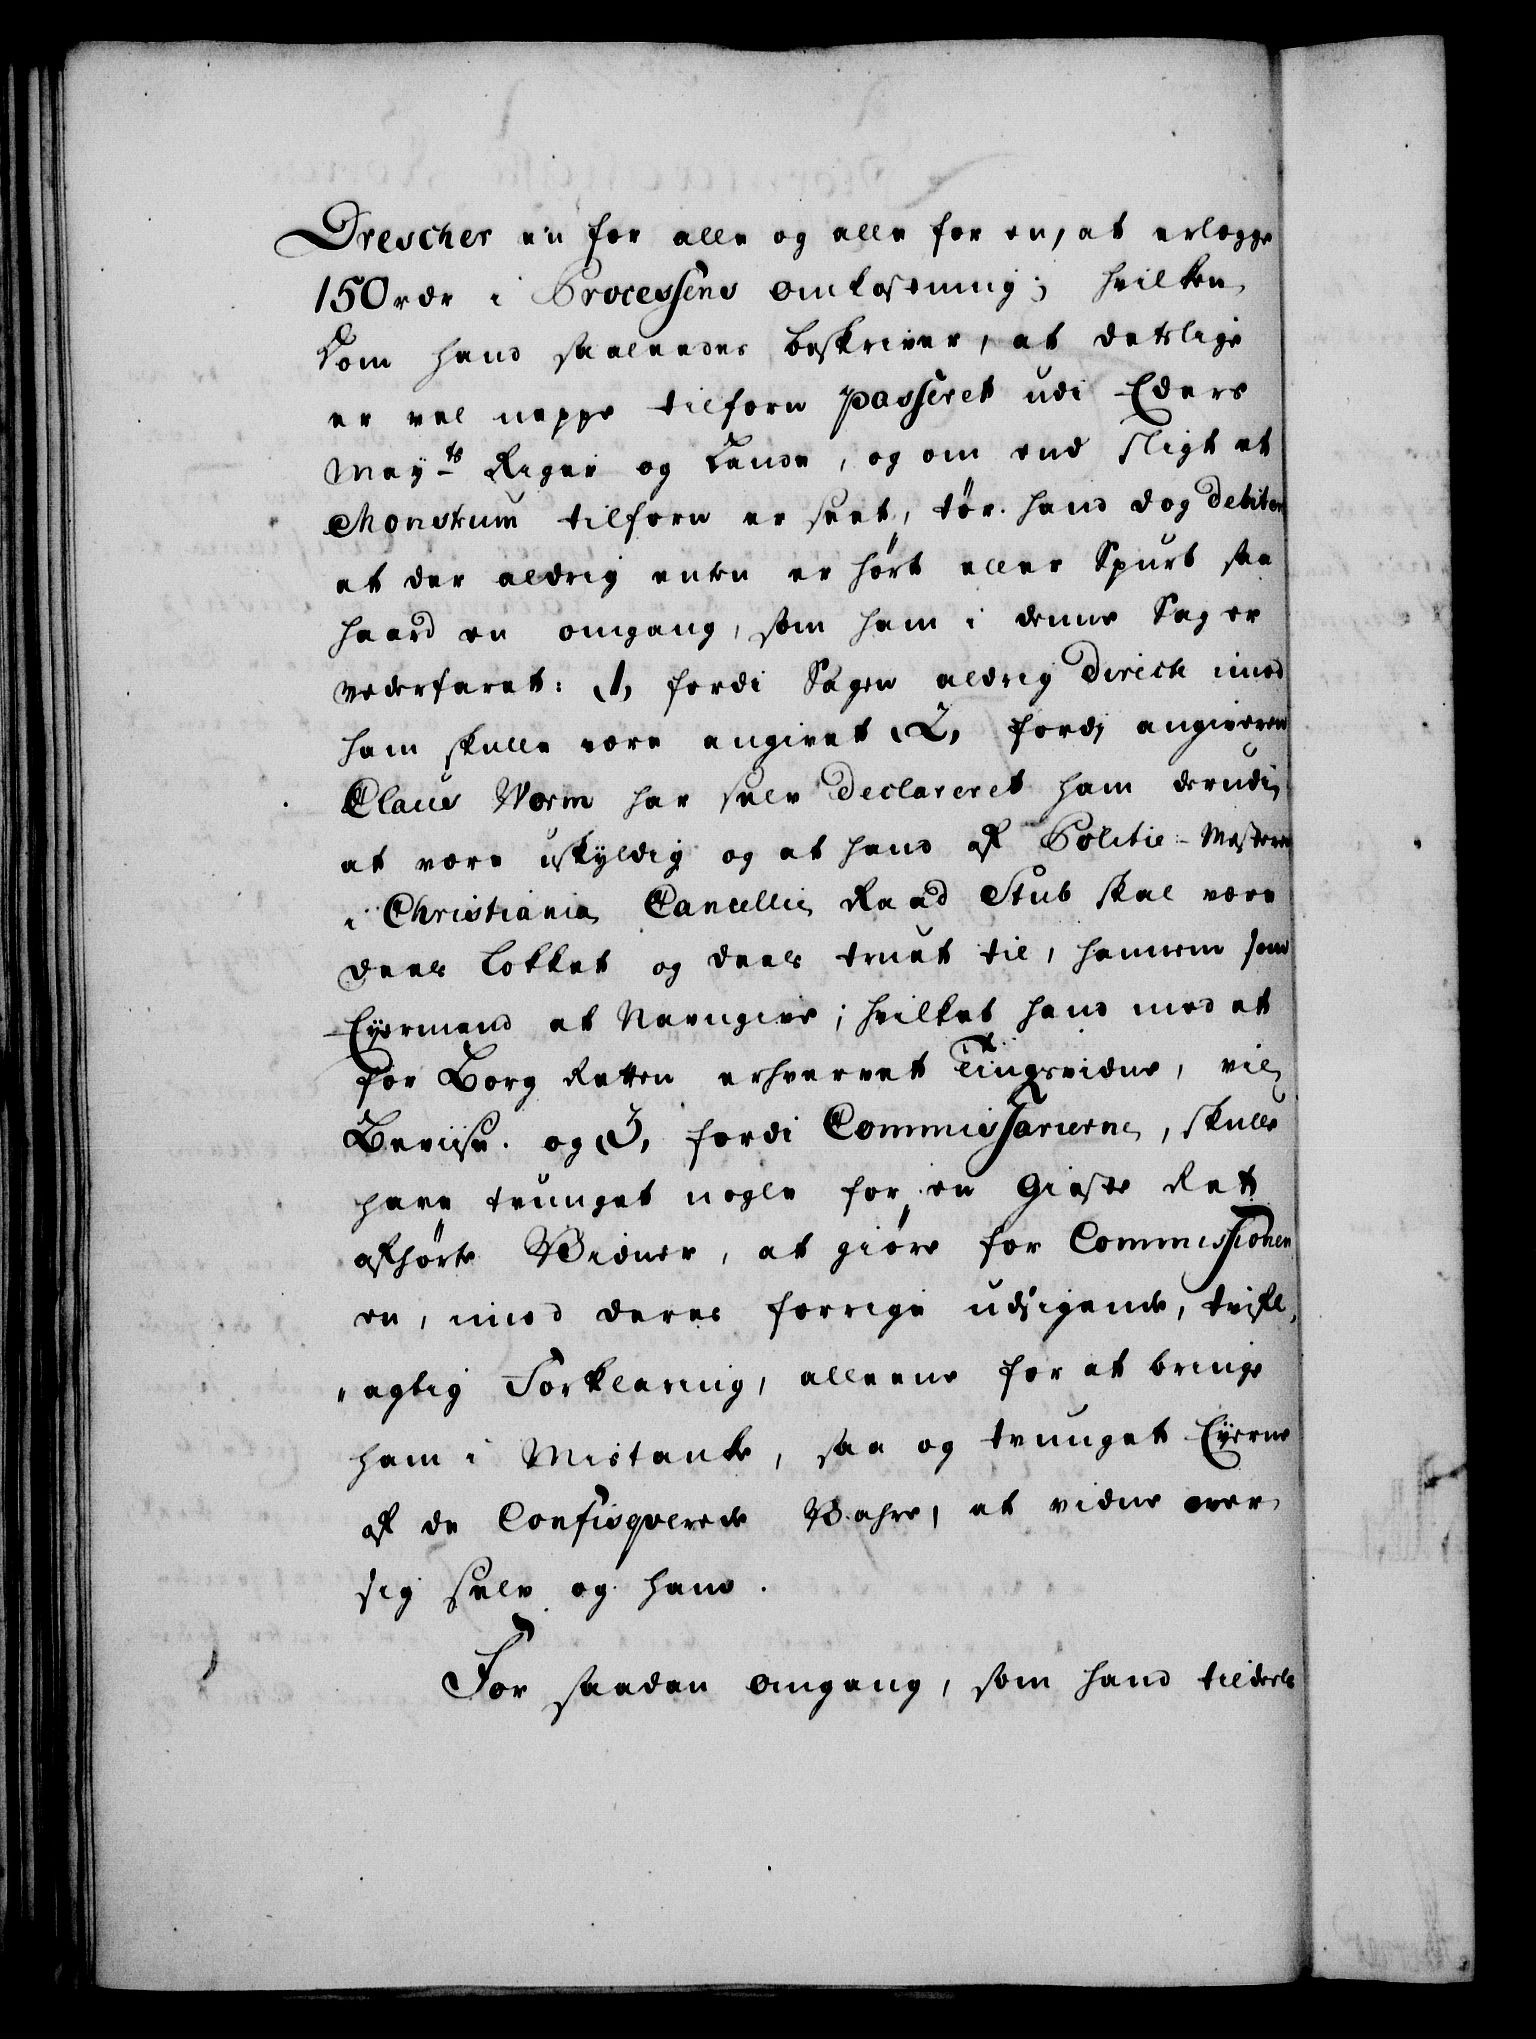 Drescher een for alle og alle for en, at erlegge
150 rdr i Processens omkostning; hvilken
Dom hand saaleedes beskriver, at detslige
er vel neppe tilforn passeret udi Eders
May.ts Riger og Lande, og om end sligt et
Monstrum tilforn er seet, tør hand dog debitere
at der aldrig enten er hørt eller Spurt saa
haard en omgang, som ham i denne Sag er
vederfaret: 1, fordi Sagen aldrig Directe imod
ham skulle være angivet 2, fordi angiveren
Claus Worm har selv Declareret ham derudi
at være uskyldig og at hand af Politie-Mesteren
i Christiania Cancellie Raad Stub skal være
deels lokket og deels truet til, hannem som
Eyermand at Navngive; hvilket hand med et
for Borg Retten erhvervet Tingsvidne, vil
Beviise. og 3, fordi Commissarierne, skulle
have trunget nogle for en Gieste Ret
afhørte Vidner, at giøre for Commissionen
en, imod deres forrige udsigende, tvifl,
"agtig Forklaring, alleene for at bringe
ham i Mistanke, saa og tvunget Eyerne
af de Confisqverede Vahre, at vidne over
sig selv og ham.
For saadan omgang, som hand tildeels